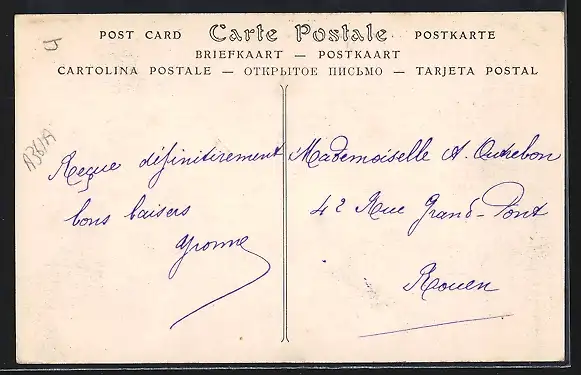 POST CARD Carte Postale POSTKARTE
BRIEFKAART — POSTKAART
CARTOLINA POSTALE — ОТКРЫТОЕ ПИСЬМО — TARJETA POSTAL
J
A361A
Reçue définitivement
bons baisers
Yvonne
Mademoiselle A. Outrebon
42 Rue Grand-Pont
Rouen